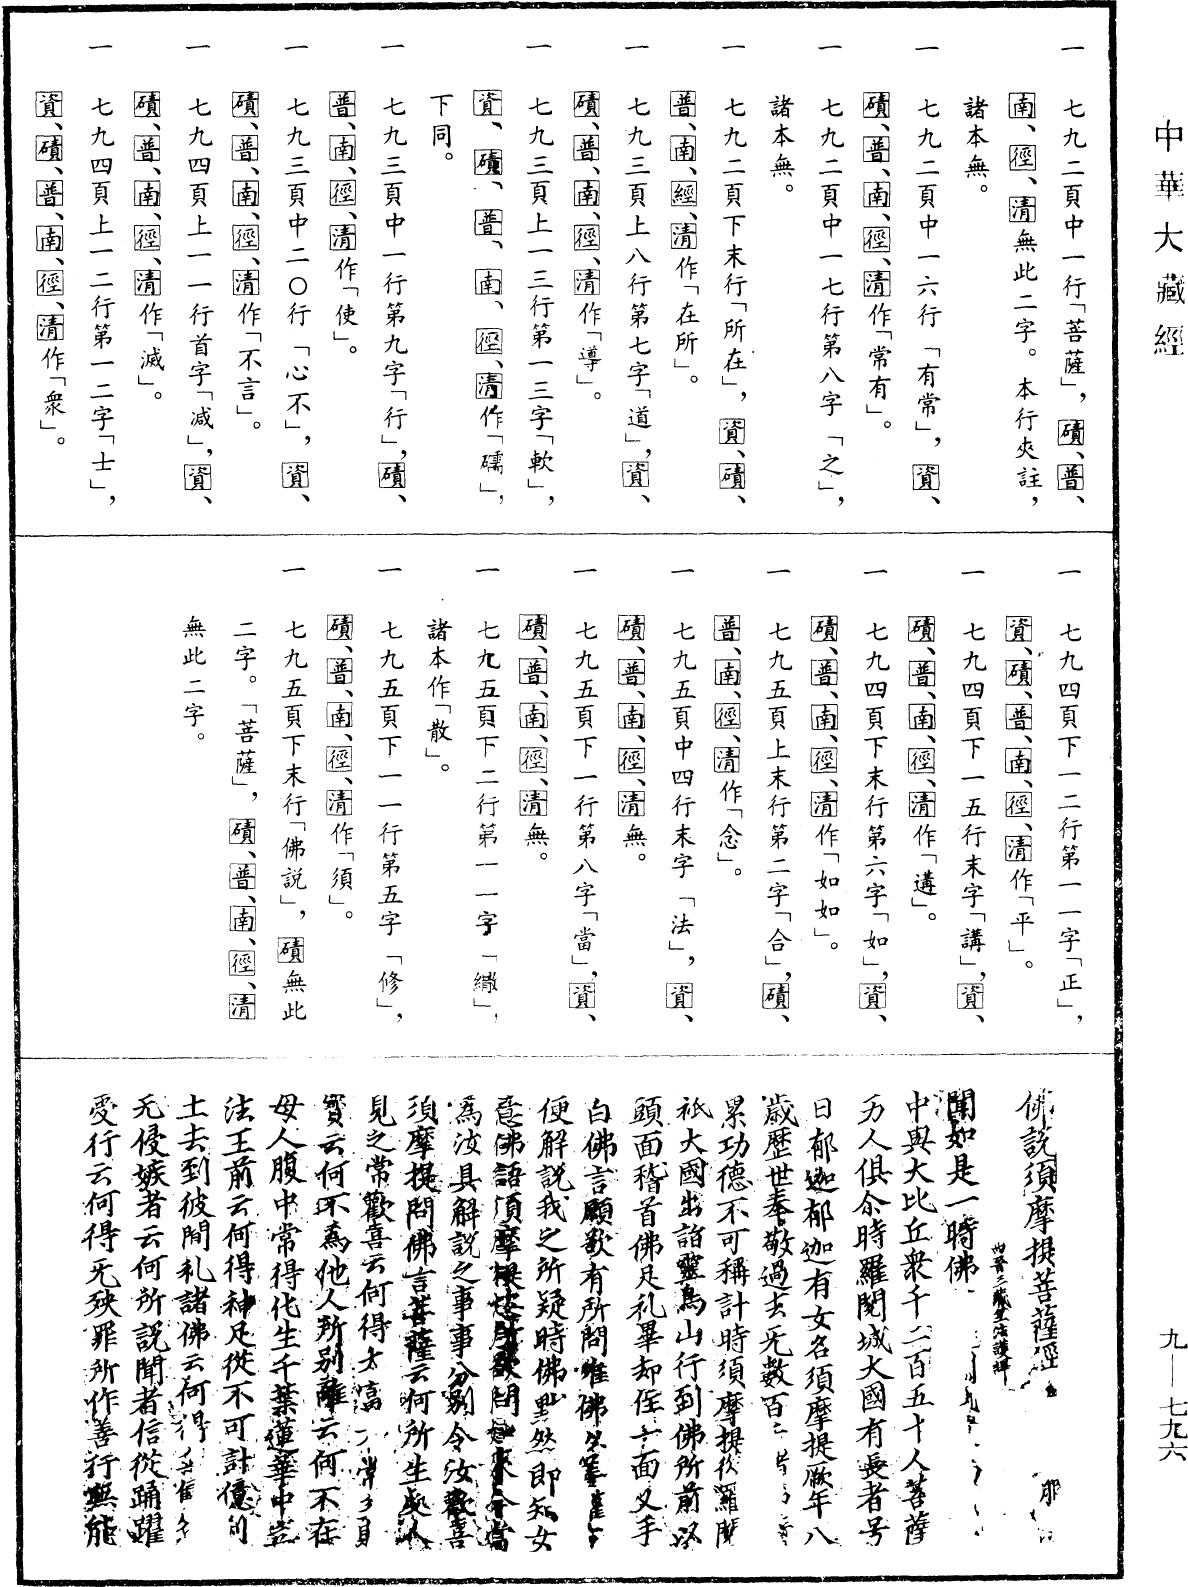 中華大藏經
一　七九二頁中一行「菩薩」，磧、普、
南、徑、清無此二字。本行夾註，
諸本無。
一　七九二頁中一六行「有常」，資、
磧、普、南、徑、清作「常有」。
一　七九二頁中一七行第八字「之」，
諸本無。
一　七九二頁下末行「所在」，資、磧、
普、南、經、清作「在所」。
一　七九三頁上八行第七字「道」，資、
磧、普、南、徑、清作「導」。
一　七九三頁上一三行第一三字「軟」，
資、磧、普、南、徑、清作「礝」，
下同。
一　七九三頁中一行第九字「行」，磧、
普、南、徑、清作「使」。
一　七九三頁中二〇行「心不」，資、
磧、普、南、徑、清作「不言」。
一　七九四頁上一一行首字「減」，資、
磧、普、南、徑、清作「滅」。
一　七九四頁上一二行第一二字「士」，
資、磧、普、南、徑、清作「衆」。
一　七九四頁下一二行第一一字「正」，
資、磧、普、南、徑、清作「平」。
一　七九四頁下一五行末字「講」，資、
磧、普、南、徑、清作「遘」。
一　七九四頁下末行第六字「如」，資、
磧、普、南、徑、清作「如如」。
一　七九五頁上末行第二字「合」，磧、
普、南、徑、清作「念」。
一　七九五頁中四行末字「法」，資、
磧、普、南、徑、清無。
一　七九五頁下一行第八字「當」，資、
磧、普、南、徑、清無。
一　七九五頁下二行第一一字「繖」，
諸本作「散」。
一　七九五頁下一一行第五字「修」，
磧、普、南、徑、清作「須」。
一　七九五頁下末行「佛説」，磧無此
二字。「菩薩」，磧、普、南、徑、清
無此二字。
佛説須摩提菩薩經
西晉三藏竺法護譯
聞如是一時佛
中與大比丘衆千二百五十人菩薩
万人俱尒時羅閱城大國有長者号
日郁迦郁迦有女名須摩提厥年八
歲歷世奉敬過去无數百
累功德不可稱計時須摩提從羅閱
祇大國出詣靈鳥山行到佛所前以
頭面稽首佛足礼畢却住一面叉手
白佛言願欲有所問唯佛
便解説我之所疑時佛默然即知女
意佛語須摩提恣所欲問如來今當
爲汝具解説之事事分別令汝歡喜
須摩提問佛言菩薩云何所生處人
見之常歡喜云何得大富
寶云何不爲他人所別離云何不在
母人腹中常得化生千葉蓮華中立
法王前云何得神足從不可計億刹
土去到彼間礼諸佛云何得
无侵嫉者云何所説聞者信從踊躍
受行云何得无殃罪所作善行無能
九—七九六